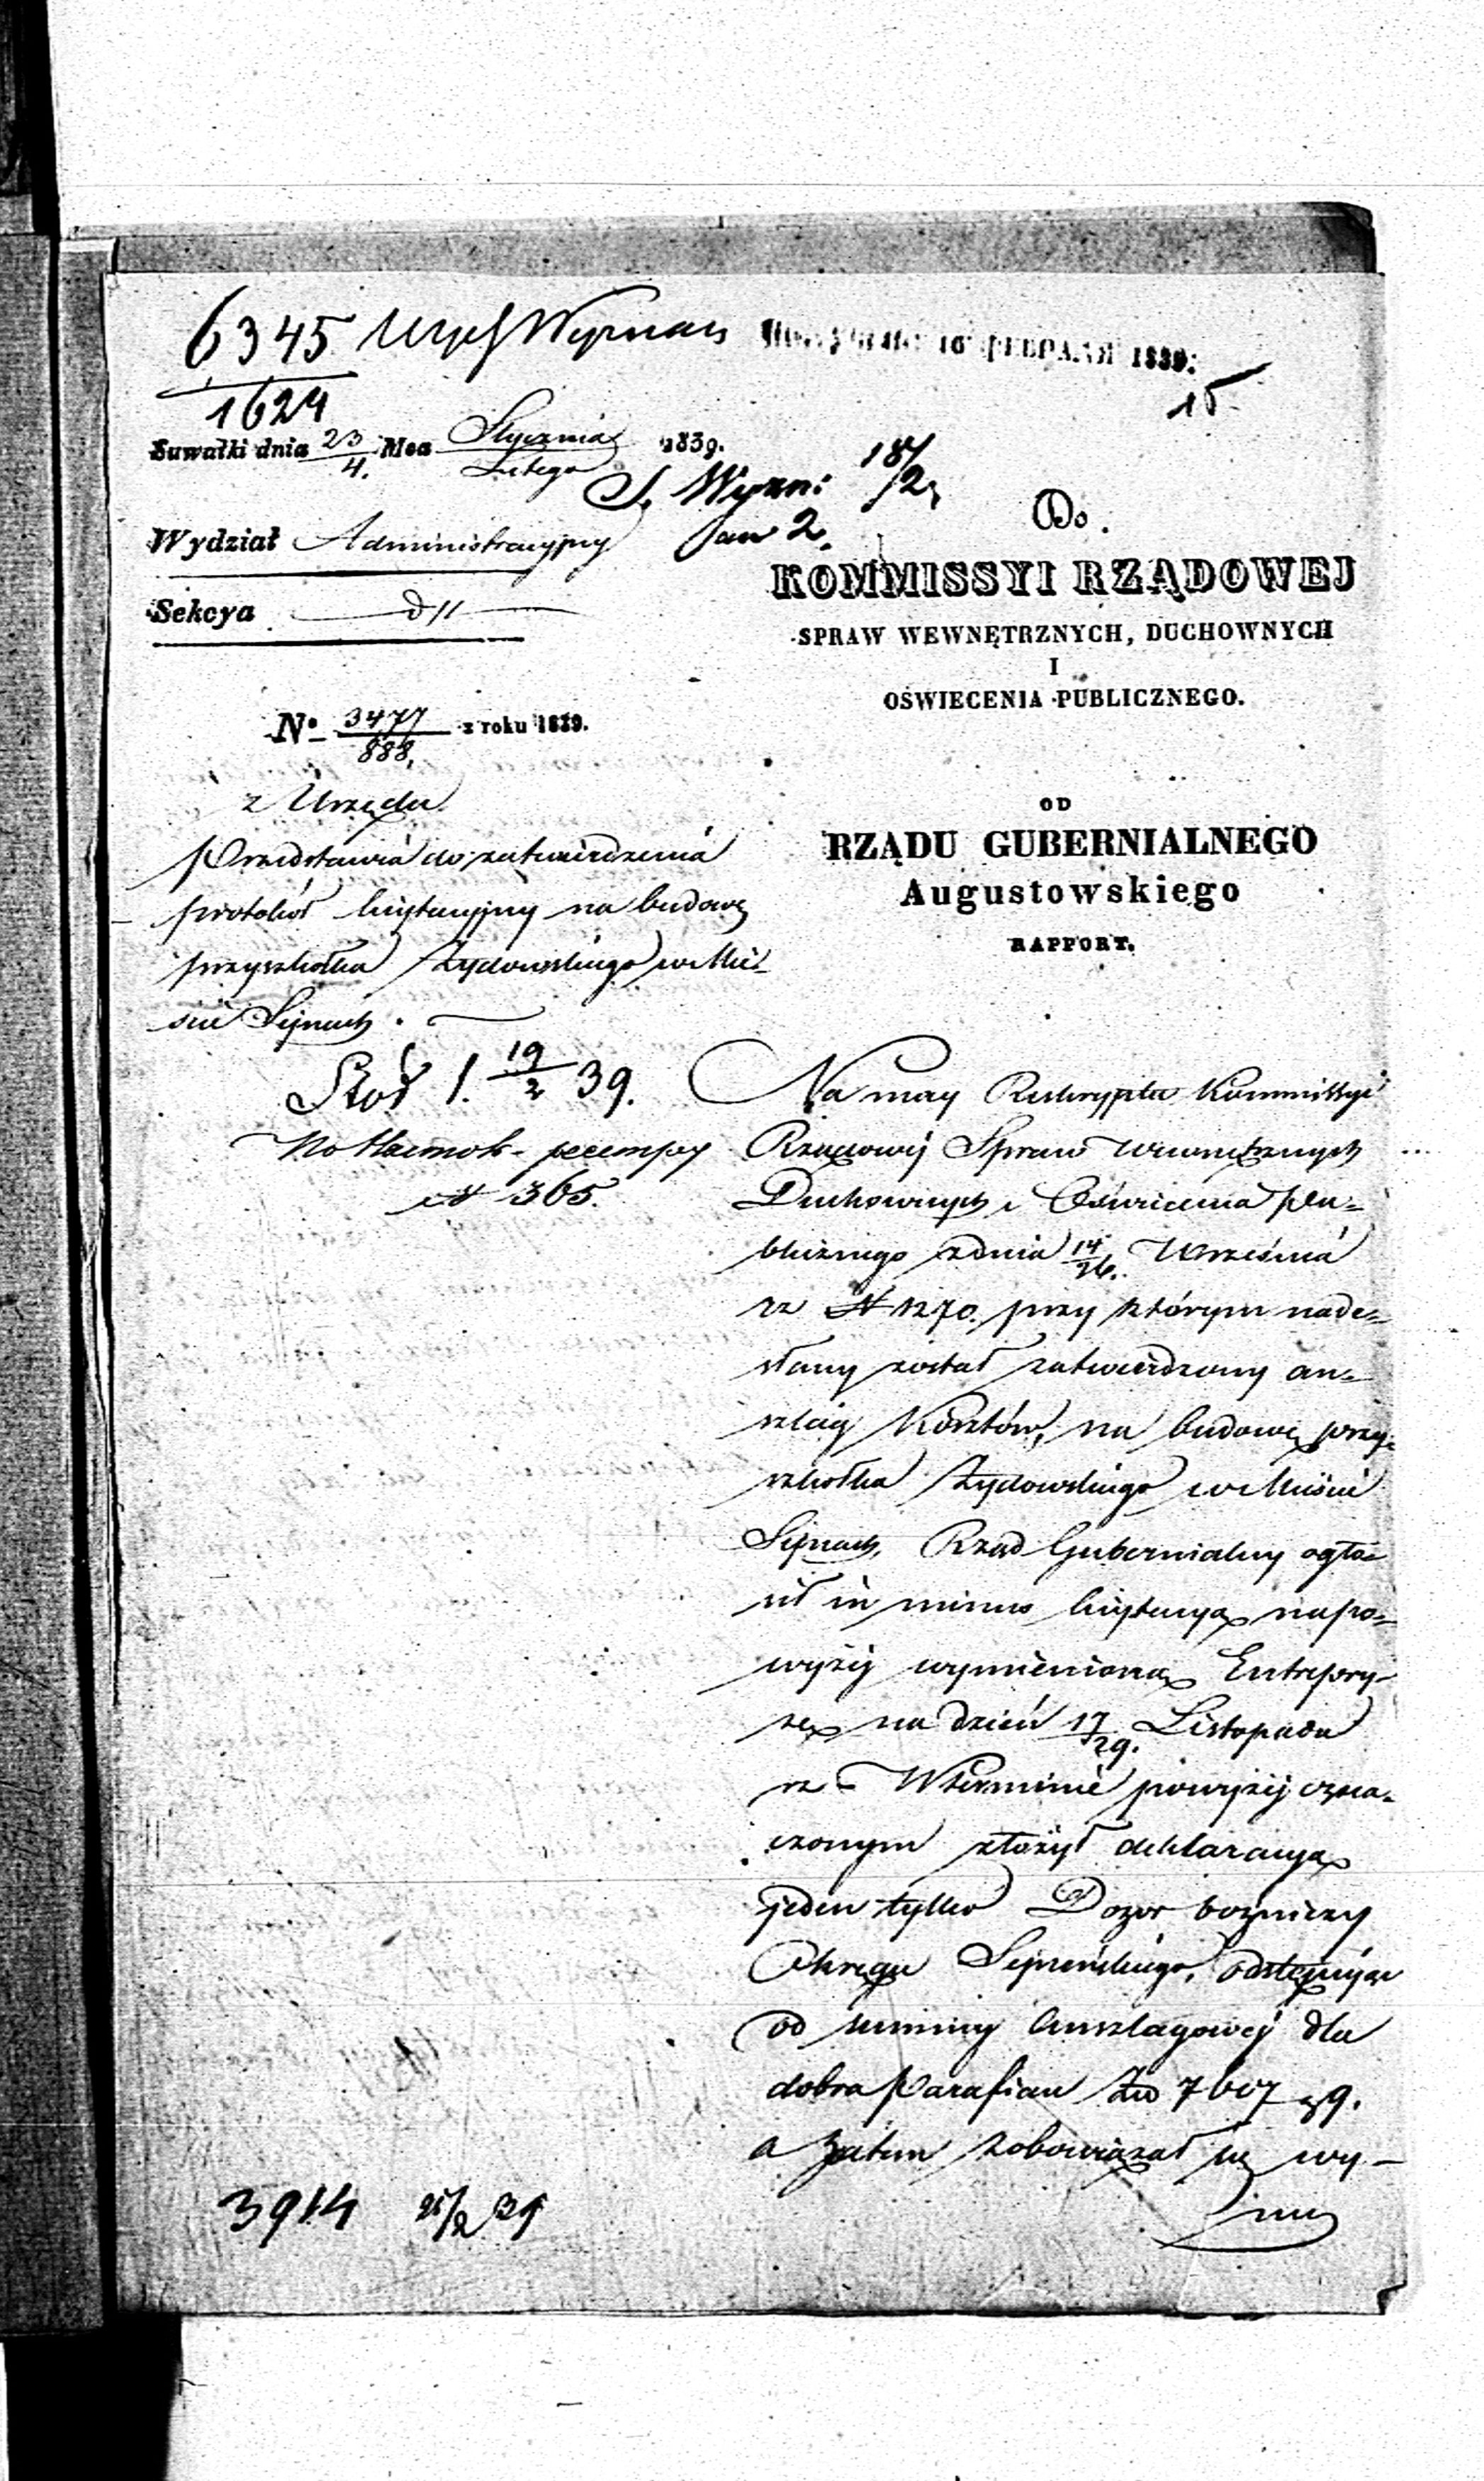 6345 Wyzn
1624
ФЕВРАЛЯ 1839.
15
Suwałki dnia 23/4. Mca Stycznia/Lutego 1839.
S. Wyzn: 18/2
Wydział Administracyjny
Sekcya
Do
KOMMISSYI RZĄDOWEJ
SPRAW WEWNĘTRZNYCH, DUCHOWNYCH
I
OŚWIECENIA PUBLICZNEGO.
No 3477/888. z roku 1839.
OD
RZĄDU GUBERNIALNEGO
Augustowskiego
RAPPORT.
z Urzędu
Przedstawia do zatwierdzenia
protokół licytacyjny na budowę
przyszkółka Żydowskiego w Mie-
ście Sejnach.
1. 19/2 39.
№ 365.
Na mocy Reskryptu Kommissyi
Rządowej Spraw Wewnętrznych
Duchownych i Oświecenia Pu-
blicznego z dnia 14/26. Września
rz № 1270. przy którym nade-
słany został zatwierdzony an-
szlag Kosztów, na budowę przy-
szkółka Żydowskiego w Mieście
Sejnach, Rząd Gubernialny ogło-
sił in minus licytacyą na po-
wyżej wymienioną Entrepry-
zę na dzień 17/29. Listopada
rz W terminie powyżej ozna-
czonym złożył deklaracyą
jeden tylko Dozor bożniczy
Okręgu Sejneńskiego, odstępując
od summy Anszlagowej dla
dobra Parafian Złp 7607 g 9.
a zatem zobowiązał się wy-
3914 21/2 39